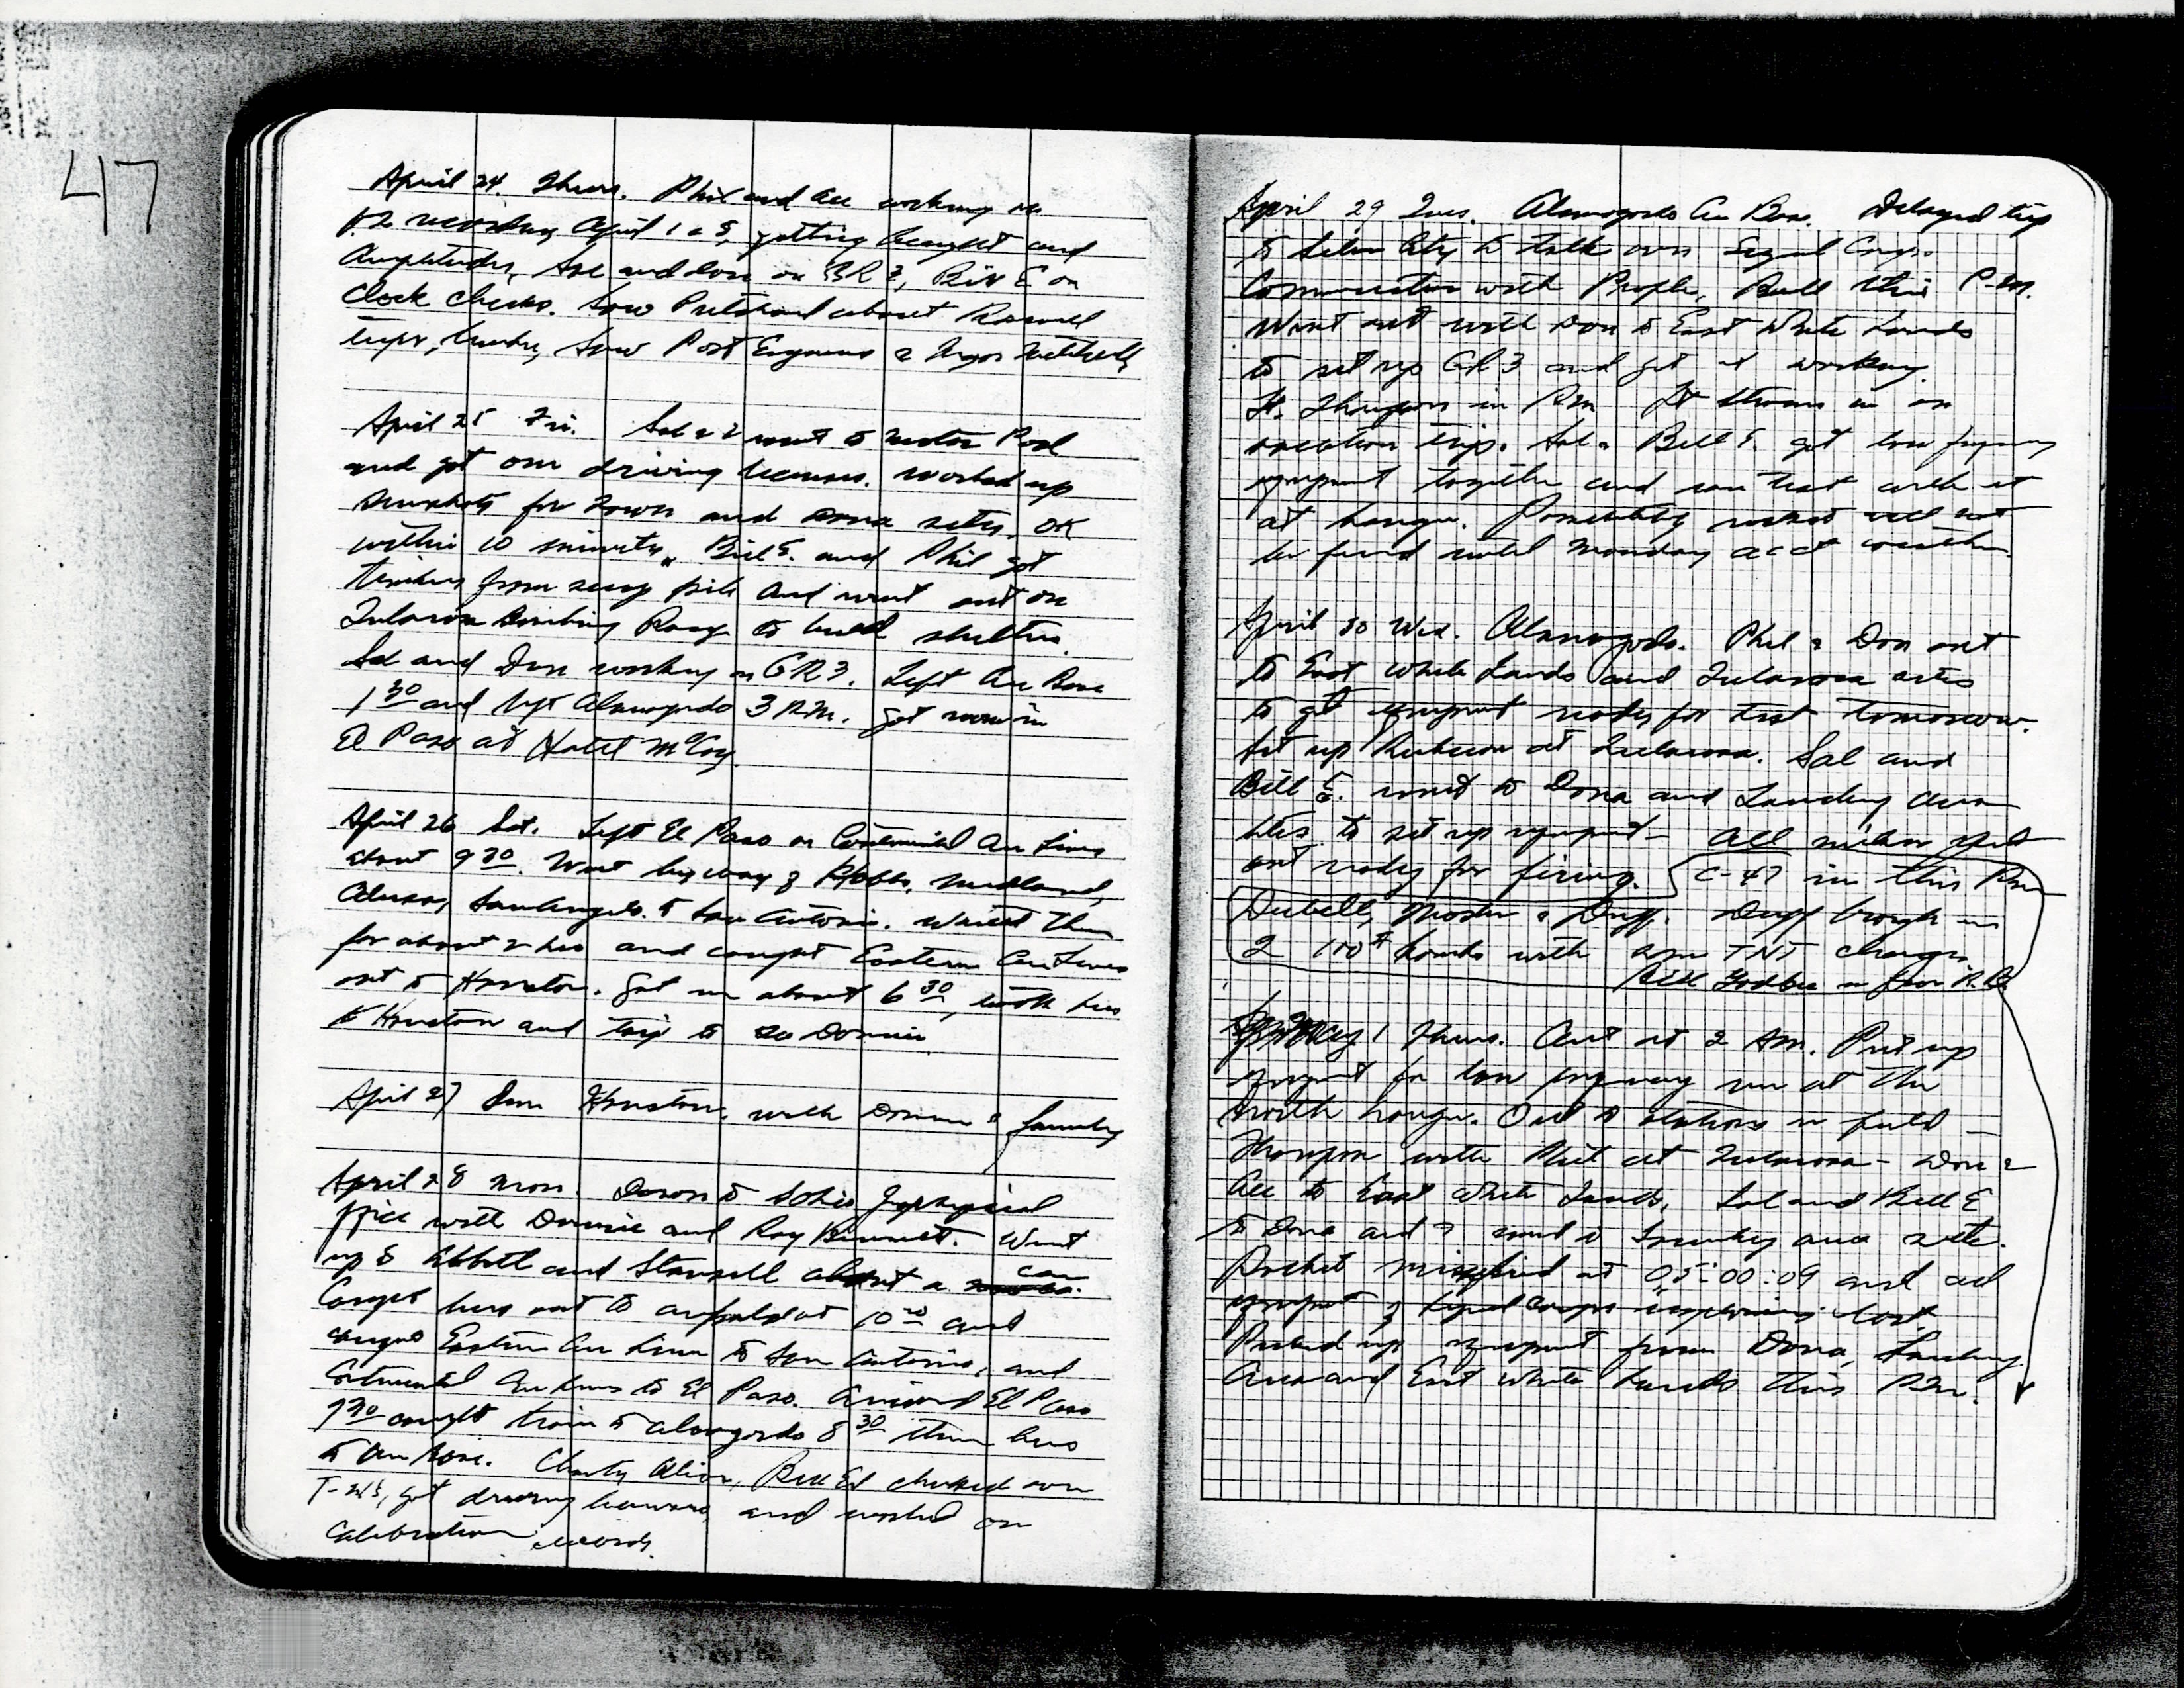 47
April 24 Thurs. Phil and all working on
V-2 recording April 1 & 8, getting and
Amplitudes, Sal and Don on GR 3, Bill E on
Clock checks. Saw Pritchard about Roswell
trips, Saw Post Engineers & Major Mitchell
April 25 Fri. Sal & I went to Motor Pool
and got our driving licenses. Worked up
for Tower and Dona sites, OK
within 10 minutes. Bill E. and Phil got
timbers from pile and went out on
Tularosa Bombing Range to build shelters.
Sal and Don working on GR3. Left Air Base
1 30 and left Alamogordo 3 P.M. got room in
El Paso at Hotel McCoy
April 26 Sat. Left El Paso on Continental Air Lines
about 9 30. Went by way of Hobbs, Midland,
San Angelo to San Antonio. Waited there
for about 2 hrs and caught Eastern Air Lines
out to Houston. Got in about 6 30, took bus
to Houston and taxi to Domie.
April 27 Sun Houston, with Domie & family
April 28 Mon. Down to Sohio Geophysical
office with Domie and Ray Bennett. Went
up to Abbott and Stansell about a car
Caught bus out to airfield at 10 and
caught Eastern Air Lines to San Antonio, and
Continental Air Lines to El Paso. Arrived El Paso
7 30 caught train to Alamogordo 8 30 then bus
to Air Base. Charly Bill Ed checked over
T- got driving licenses, and worked on
Calibration records.
April 29 Tues. Alamogordo Air Base. Delayed trip
to Silver City to talk over Signal Corps
Communication with People, Ball this P.M.
Went out with Don to East White Sands
to set up GR3 and get it working.
Lt. Thompson in P.M. Lt in on
vacation trip. Sal & Bill E. got low frequency
equipment together and ran test with it
at hangar. Possibility rocket will not
be fired until Monday acct weather.
April 30 Wed. Alamogordo. Phil & Don out
to East White Sands and Tularosa sites
to get equipment ready for test tomorrow.
Set up at Tularosa. Sal and
Bill E. went to Dona and Landing Area
sites to set up equipment - all
out ready for firing. C-47 in this P.M.
Mosher & Duff. Duff brought in
2 100# bombs with TNT charges
Bill Godbee in from R.B.
May 1 Thurs. Out at 2 AM. Put up
equipment for low frequency run at the
North hangar. Out to stations in field -
Thompson with Phil at Tularosa - Don &
All to East White Sands, Sal and Bill E
to Dona and I went to Landing area site.
Rocket misfired at 05:00:09 and all
equipment of Signal Corps lost.
Picked up equipment from Dona, Landing
Area and East White Sands this P.M.